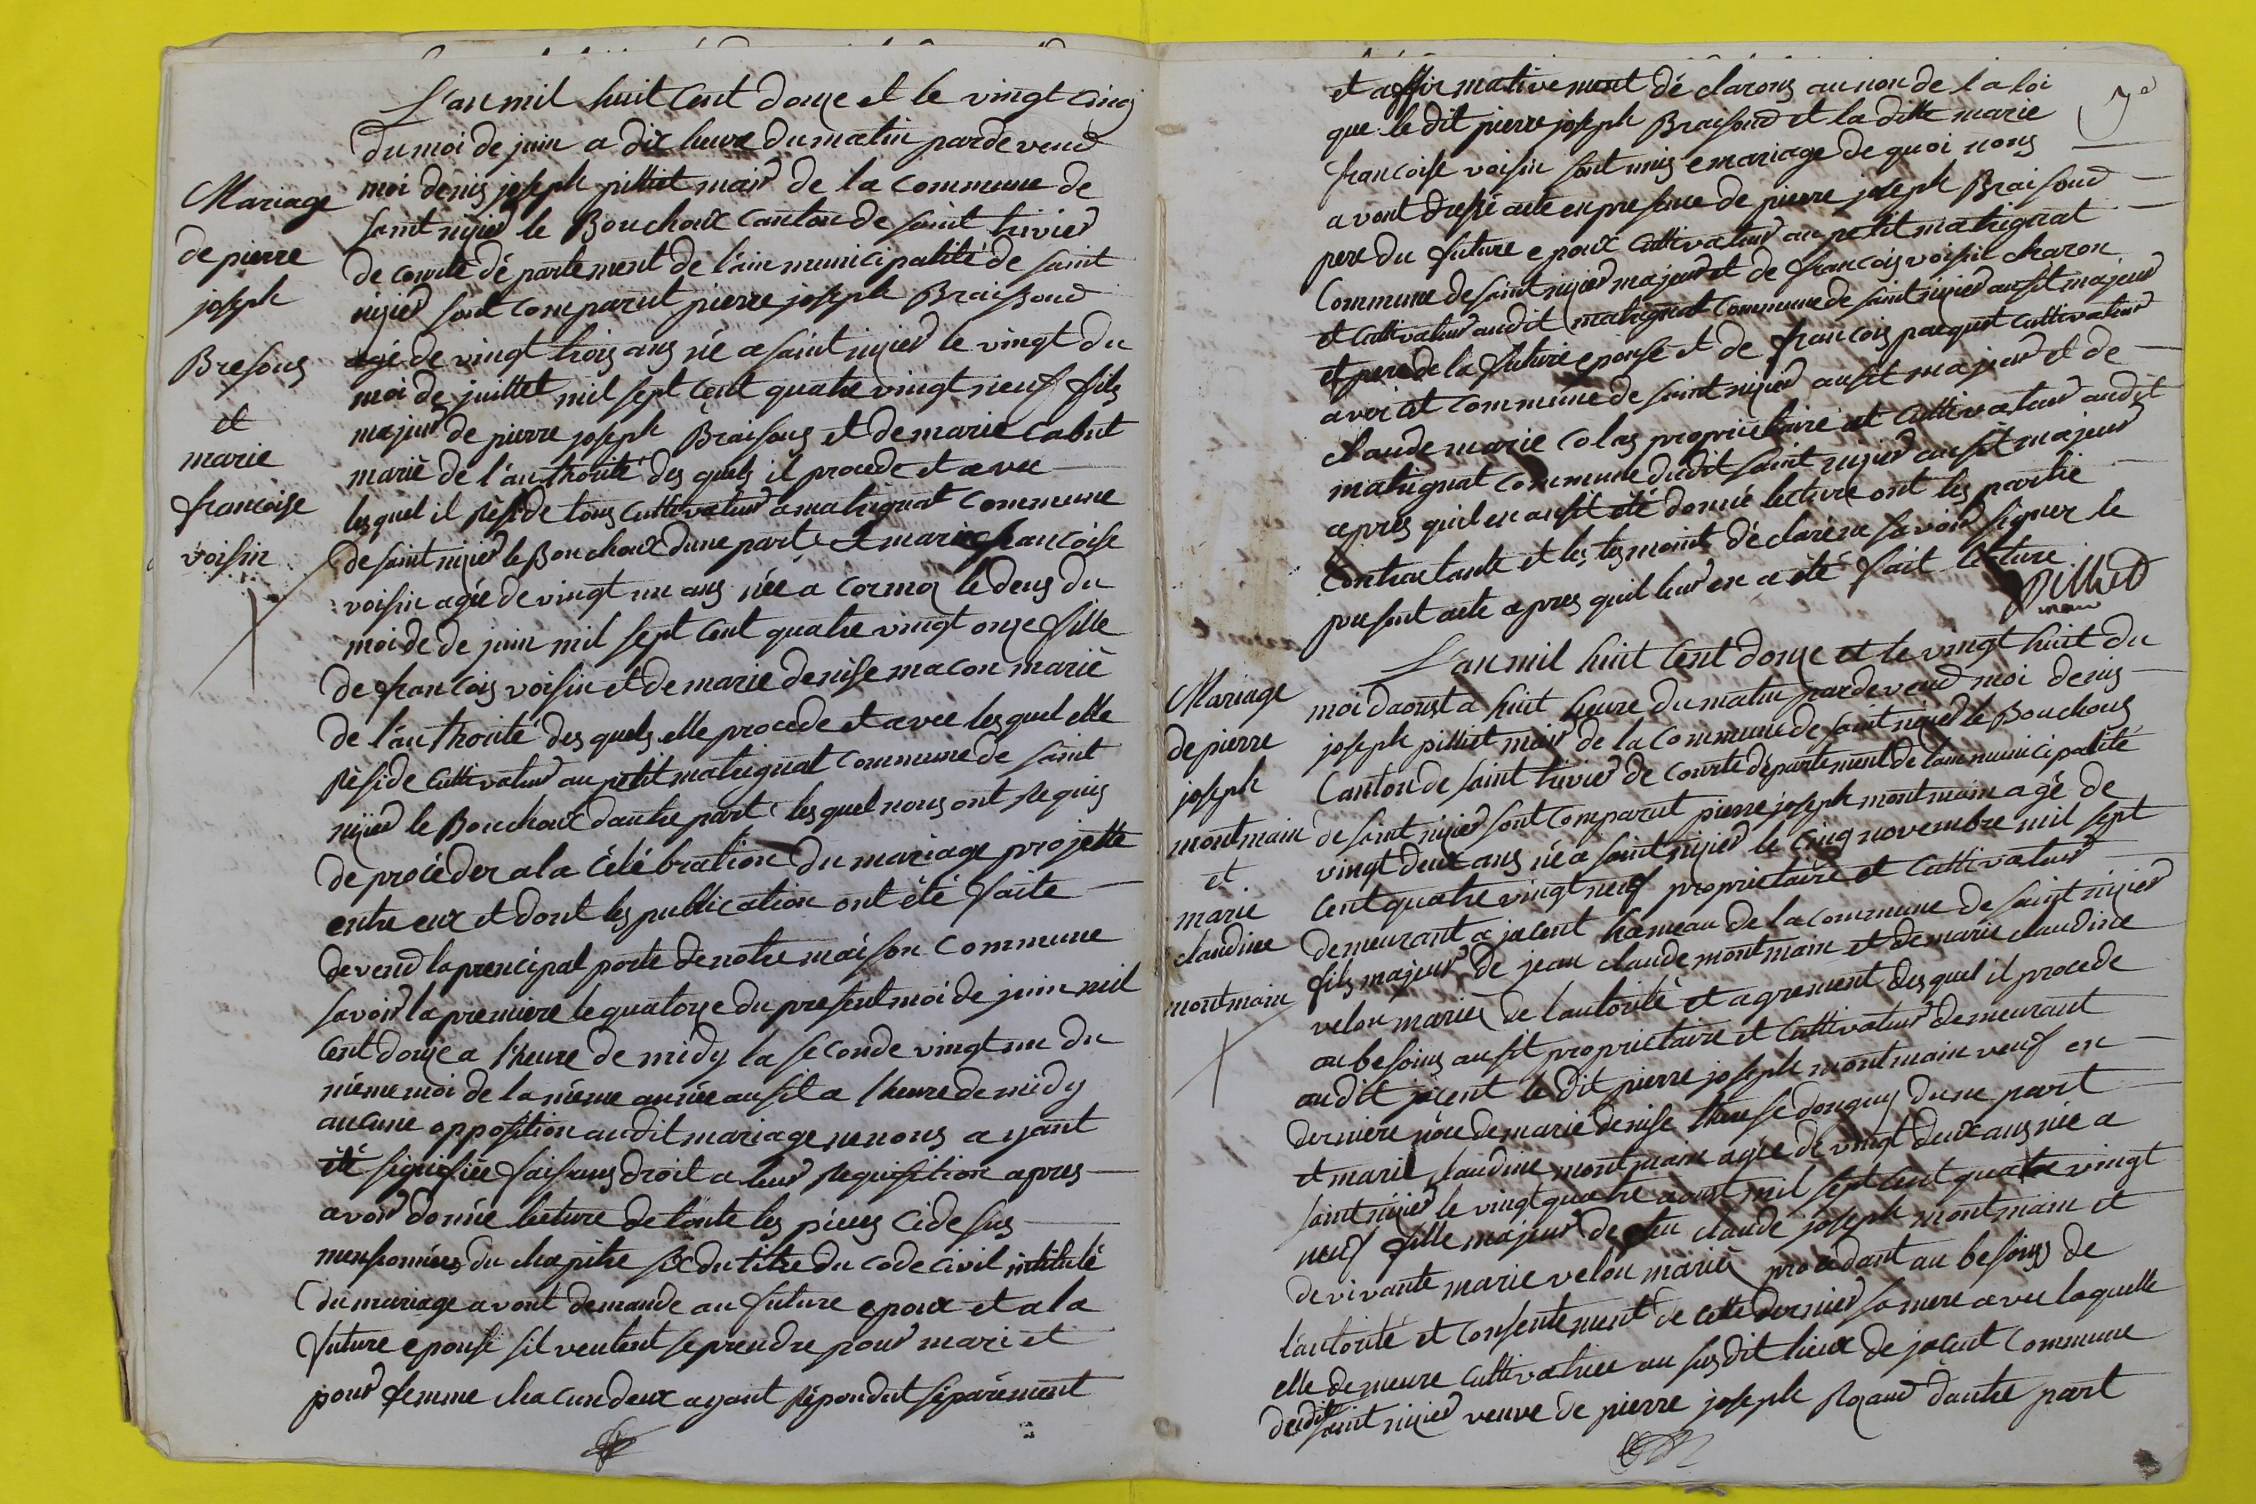 L'an mil huit Cent douze et le vingt cinq
du moi de juin a dix heure du matin pardevend
moi denis joseph pilliet mair de la commune de
saint nizied le Bouchoux canton de saint trivier
de courte département de l'ain municipalité de saint
nizied sont comparut pierre joseph Braisoud
agé de vingt trois ans né a saint nizied le vingt du
moi de juillet mil sept cent quatre vingt neuf fils
majeur de pierre joseph Braisous et de marie cabut
marié de l'authorité des quels il procede et avec
lesquel il réside tous cultivateur a matrignat commune
de saint nizied le Bouchoux dune parte et marie francoise
voisin agée de vingt un ans née a cormoz le deus du
moi de de juin mil sept cent quatre vingt onze fille
de francois voisin et de marie denise macon marié
de l'authorité des quels elle procede et avec lesquel elle
réside cultivateur au petit matrignat commune de saint
nizied le Bouchoux dautre part lesquel nous ont requis
de procéder a la célébration du mariage projette
entre eux et dont les publication ont été faite
devend la prencipal porte de notre maison commune
savoir la premiere le quatorze du present moi de juin mil
cent douze a l'heure de midy la seconde vingt un du
même moi de la même année ausit a l'heure de midy
aucune opposition audit mariage ne nous ayant
été signifiée faisans droit a leur requisition apres
avoir donnée lecture de toute les pièces cidesus
mensionnées du chapitre six du titre du code civil intitulé
du mariage avont demande au future epoux et a la
future epouse sil veulent se prendre pour mari et
pour femme chacun deux ayant répondut séparément
Mariage
de pierre
joseph
Bresous
et
marie
francoise
voisin
et affirmativement déclarons au non de la loi
que le dit pierre joseph Braisoud et la ditte marie
francoise voisin sont unis e mariage de quoi nous
avont dressé acte en presence de pierre joseph Braisoud
pere du future epoux cultivateur au petit matrignat
commune de saint nizied majeur et de francois voisin charon
et cultivateur audit matrignat commune de saint nizied ausit majeur
et pere de la future epouse et de francois pacquet cultivateur
a commune de saint nizied ausit majeur et de
claude marie colas proprietaire et cultivateur audit
matrignat commune dudit saint nizied ausit majeur
apres quil en ausit été donné lecture ont les partie
contractante et les tesmoint déclaré ne savoir signer le
present acte apres quil leur en a été fait lecture
pilliet
mair
L'an mil huit Cent douze et le vingt huit du
moi daoust a huit heure du matin pardevend moi denis
joseph pilliet mair de la commune de saint nizied le Bouchous
canton de saint trivier de courte département de lain municipalité
de saint nizied sont comparut pierre joseph montmain agé de
vingt deux ans né a saint nizied le cinq novembre mil sept
cent quatre vingt neuf proprietaire et cultivateur
demeurant a jacent hameau de la commune de saint nizied
fils majeur de jean claude montmain et de marie claudine
velon mariés de lautorité et agrement desquel il procede
au besoins ausit proprietaire et cultivateur demeurant
audit jacent le dit pierre joseph montmain veuf en
derniere nôce de marie denise therese donguy dune part
et marie claudine montmain agée de vingt deux ans née a
saint nizied le vingt quatre aoust mil sept cent quatre vingt
neuf fille majeur de feu claude joseph montmain et
de vivante marie velon marié procedant au besoins de
l'autorité et consentement de cette dernier sa mere avec laquelle
elle demeure cultivatrice au susdit lieux de jacent commune
dudit saint nizied veuve de pierre joseph dautre part
Mariage
de pierre
joseph
montmain
et
marie
claudine
montmain